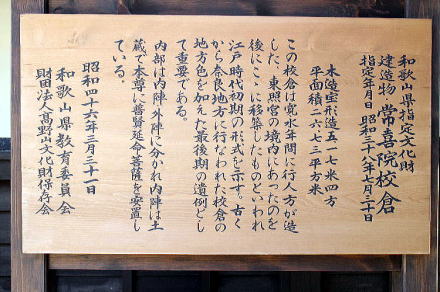 和歌山県指定文化財
建造物 常喜院校倉
指定年月日 昭和三十八年七月三十日
木造宝形造五・一七米四方
平面積二六・七三平方米
この校倉は寛永年間に行人方が造
した、東照宮の境内にあったのを
後にここに移築したものといわれ
江戸時代初期の形式を示す。古く
から奈良地方に行なわれた校倉の
地方色を加えた最後期の遺例とし
て重要である。
内部は内陣・外陣に分かれ内陣は土
蔵で本尊に普賢延命菩薩を安置し
ている。
昭和四十六年三月三十一日
和歌山県教育委員会
財団法人高野山文化財保存会